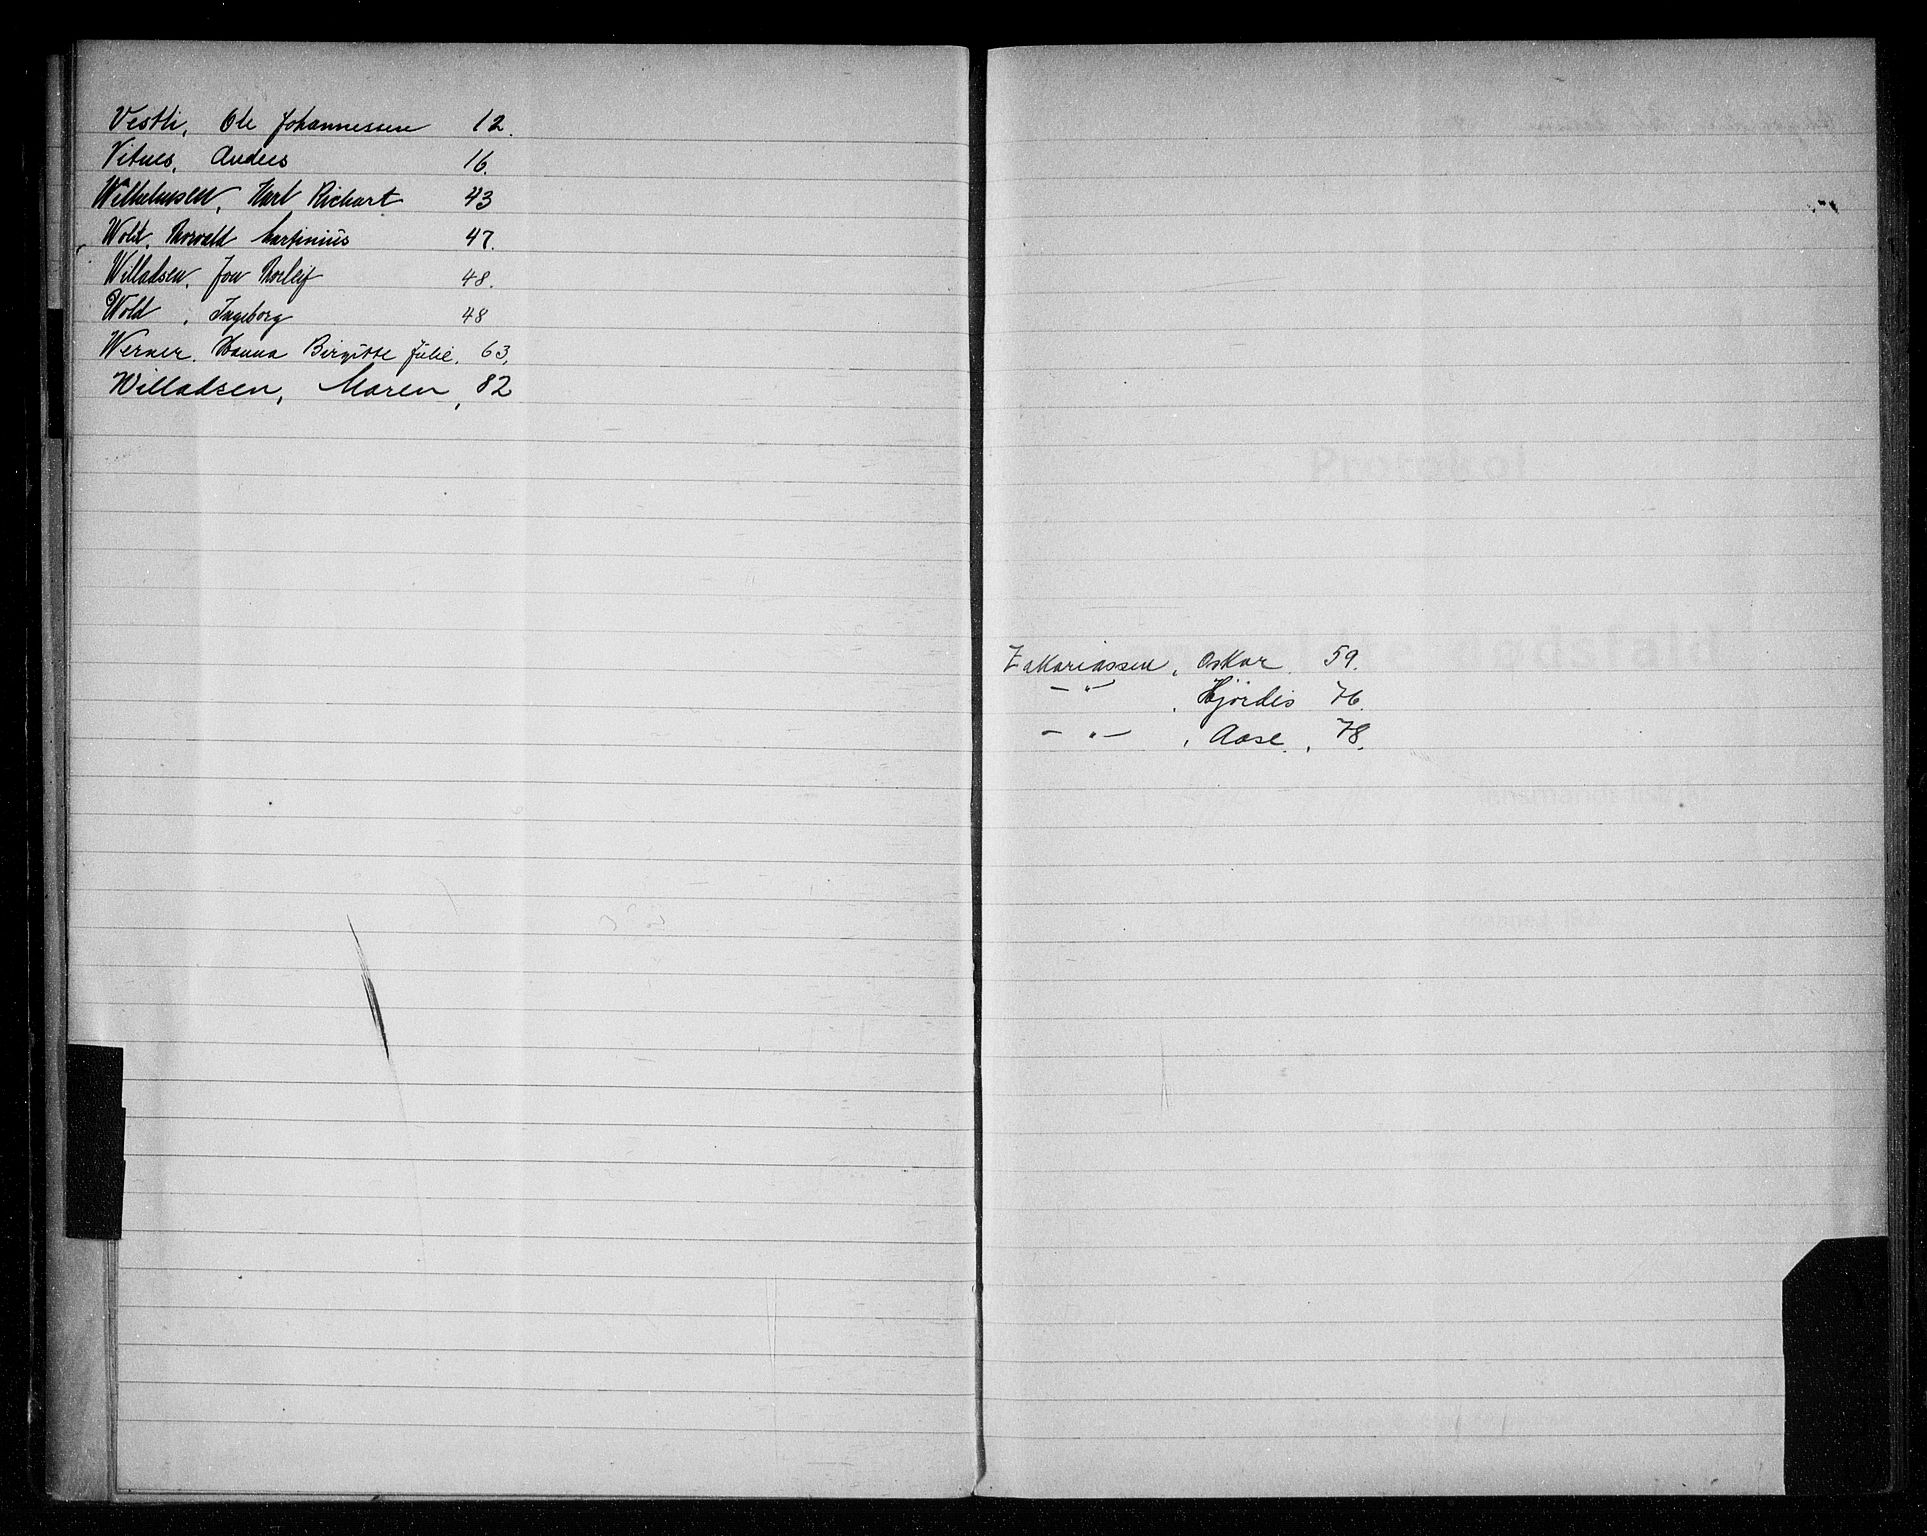 Vestli, Ole Johannessen 12.
Vitnes, Anders 16.
Wilhelmssen, Karl Richart 43
Wold, Thorvald Martinius 47.
Willadsen, Jon Thorleif 48.
Wold, Ingeborg 48
Werner. Hanna Birgitte Julie. 63.
Willadsen, Maren, 82
Zakariassen, Oskar 59.
— " — , Hjördis 76.
— " — , Aase, 78.
Protokol